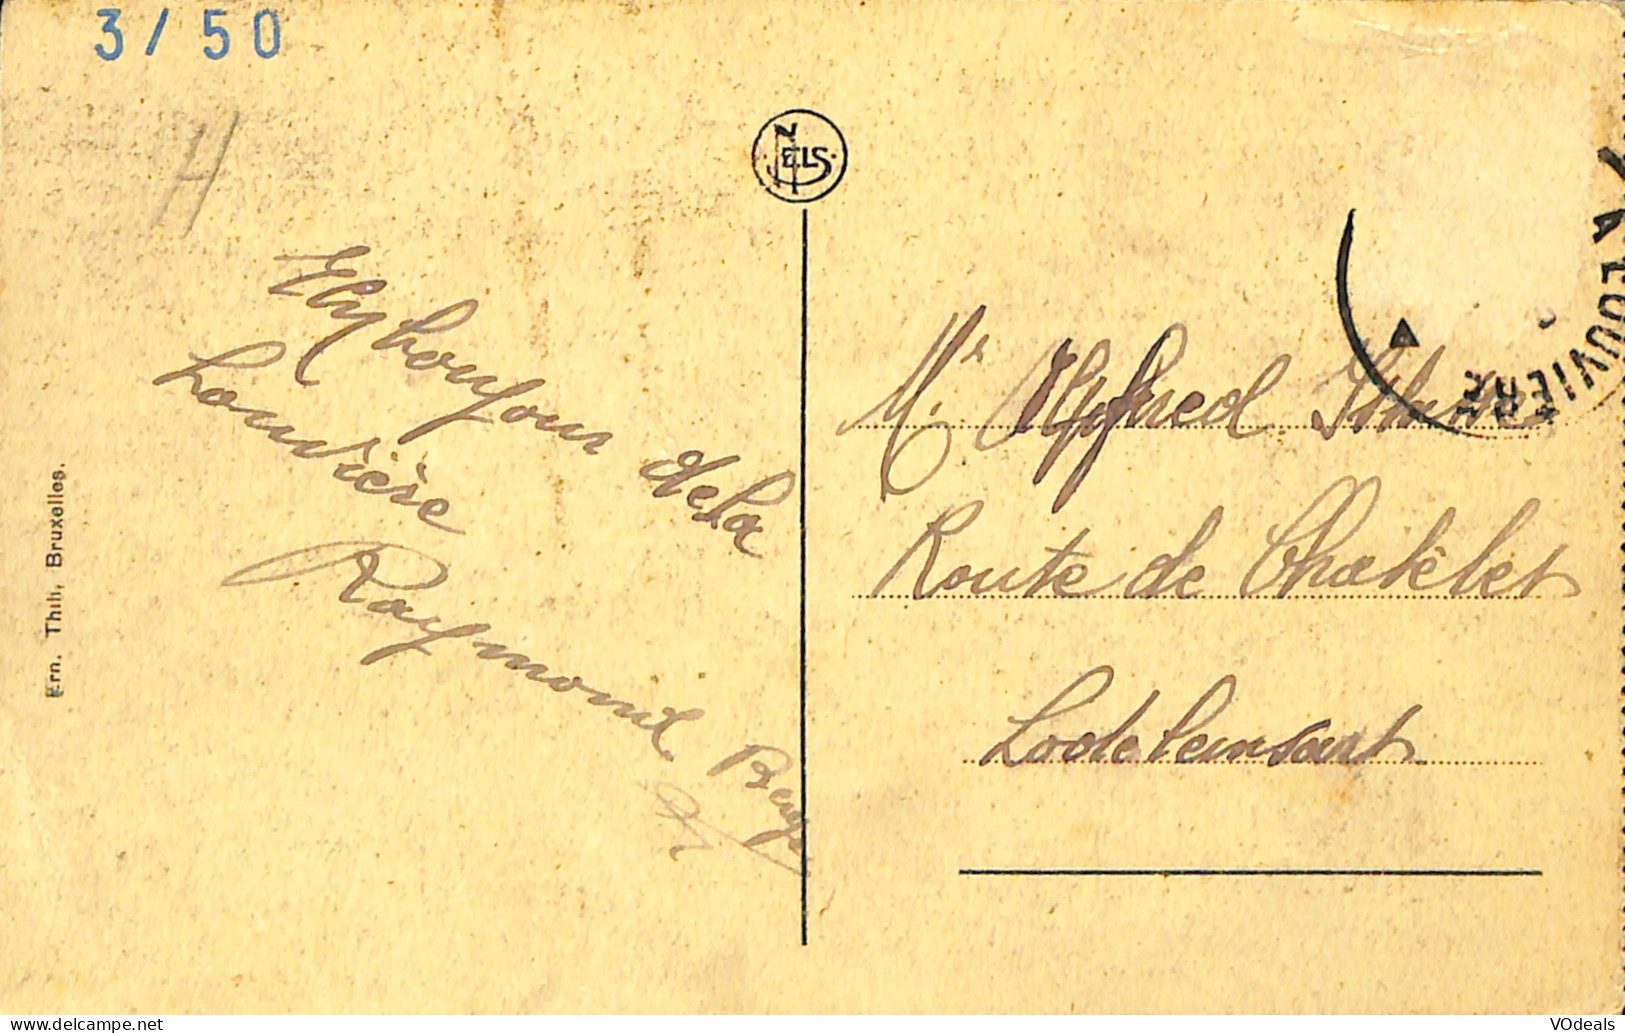 3/50
NELS
bonjour de la
Louvière
Raymond
Ern. Thill, Bruxelles.
LA LOUVIERE
Mr. Alfred
Route de Châtelet
Lodelinsart
VOdeals